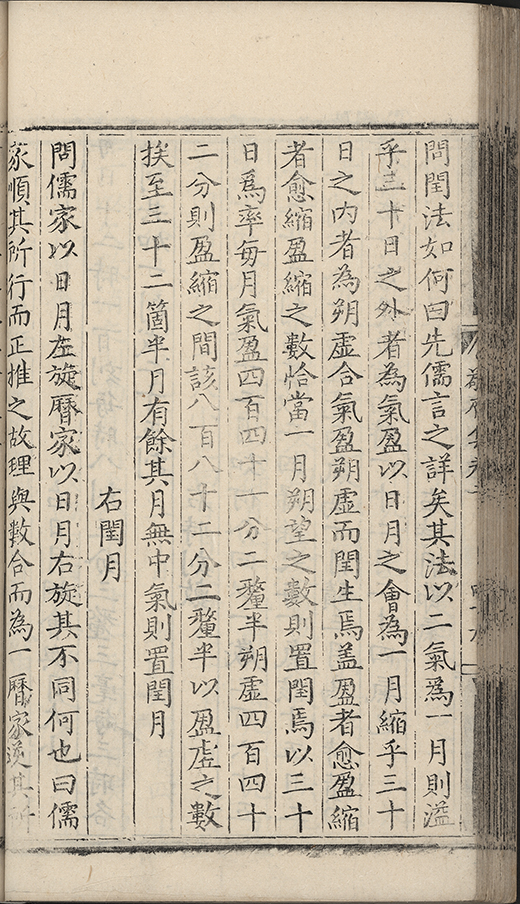 問閏法如何曰先儒言之詳矣其法以二氣爲一月則溢
乎三十日之外者為氣盈以日月之會為一月縮乎三十
日之内者為朔虚合氣盈朔虚而閏生焉盖盈者愈盈縮
者愈縮盈縮之數恰當一月朔望之數則置閏焉以三十
日爲率每月氣盈四百四十一分二釐半朔虚四百四十
二分則盈縮之間該八百八十二分二釐半以盈虚之數
挨至三十二箇半月有餘其月無中氣則置閏月
右閏月
問儒家以日月左旋曆家以日月右旋其不同何也曰儒
家順其所行而正推之故理與數合而為一曆家逆其所